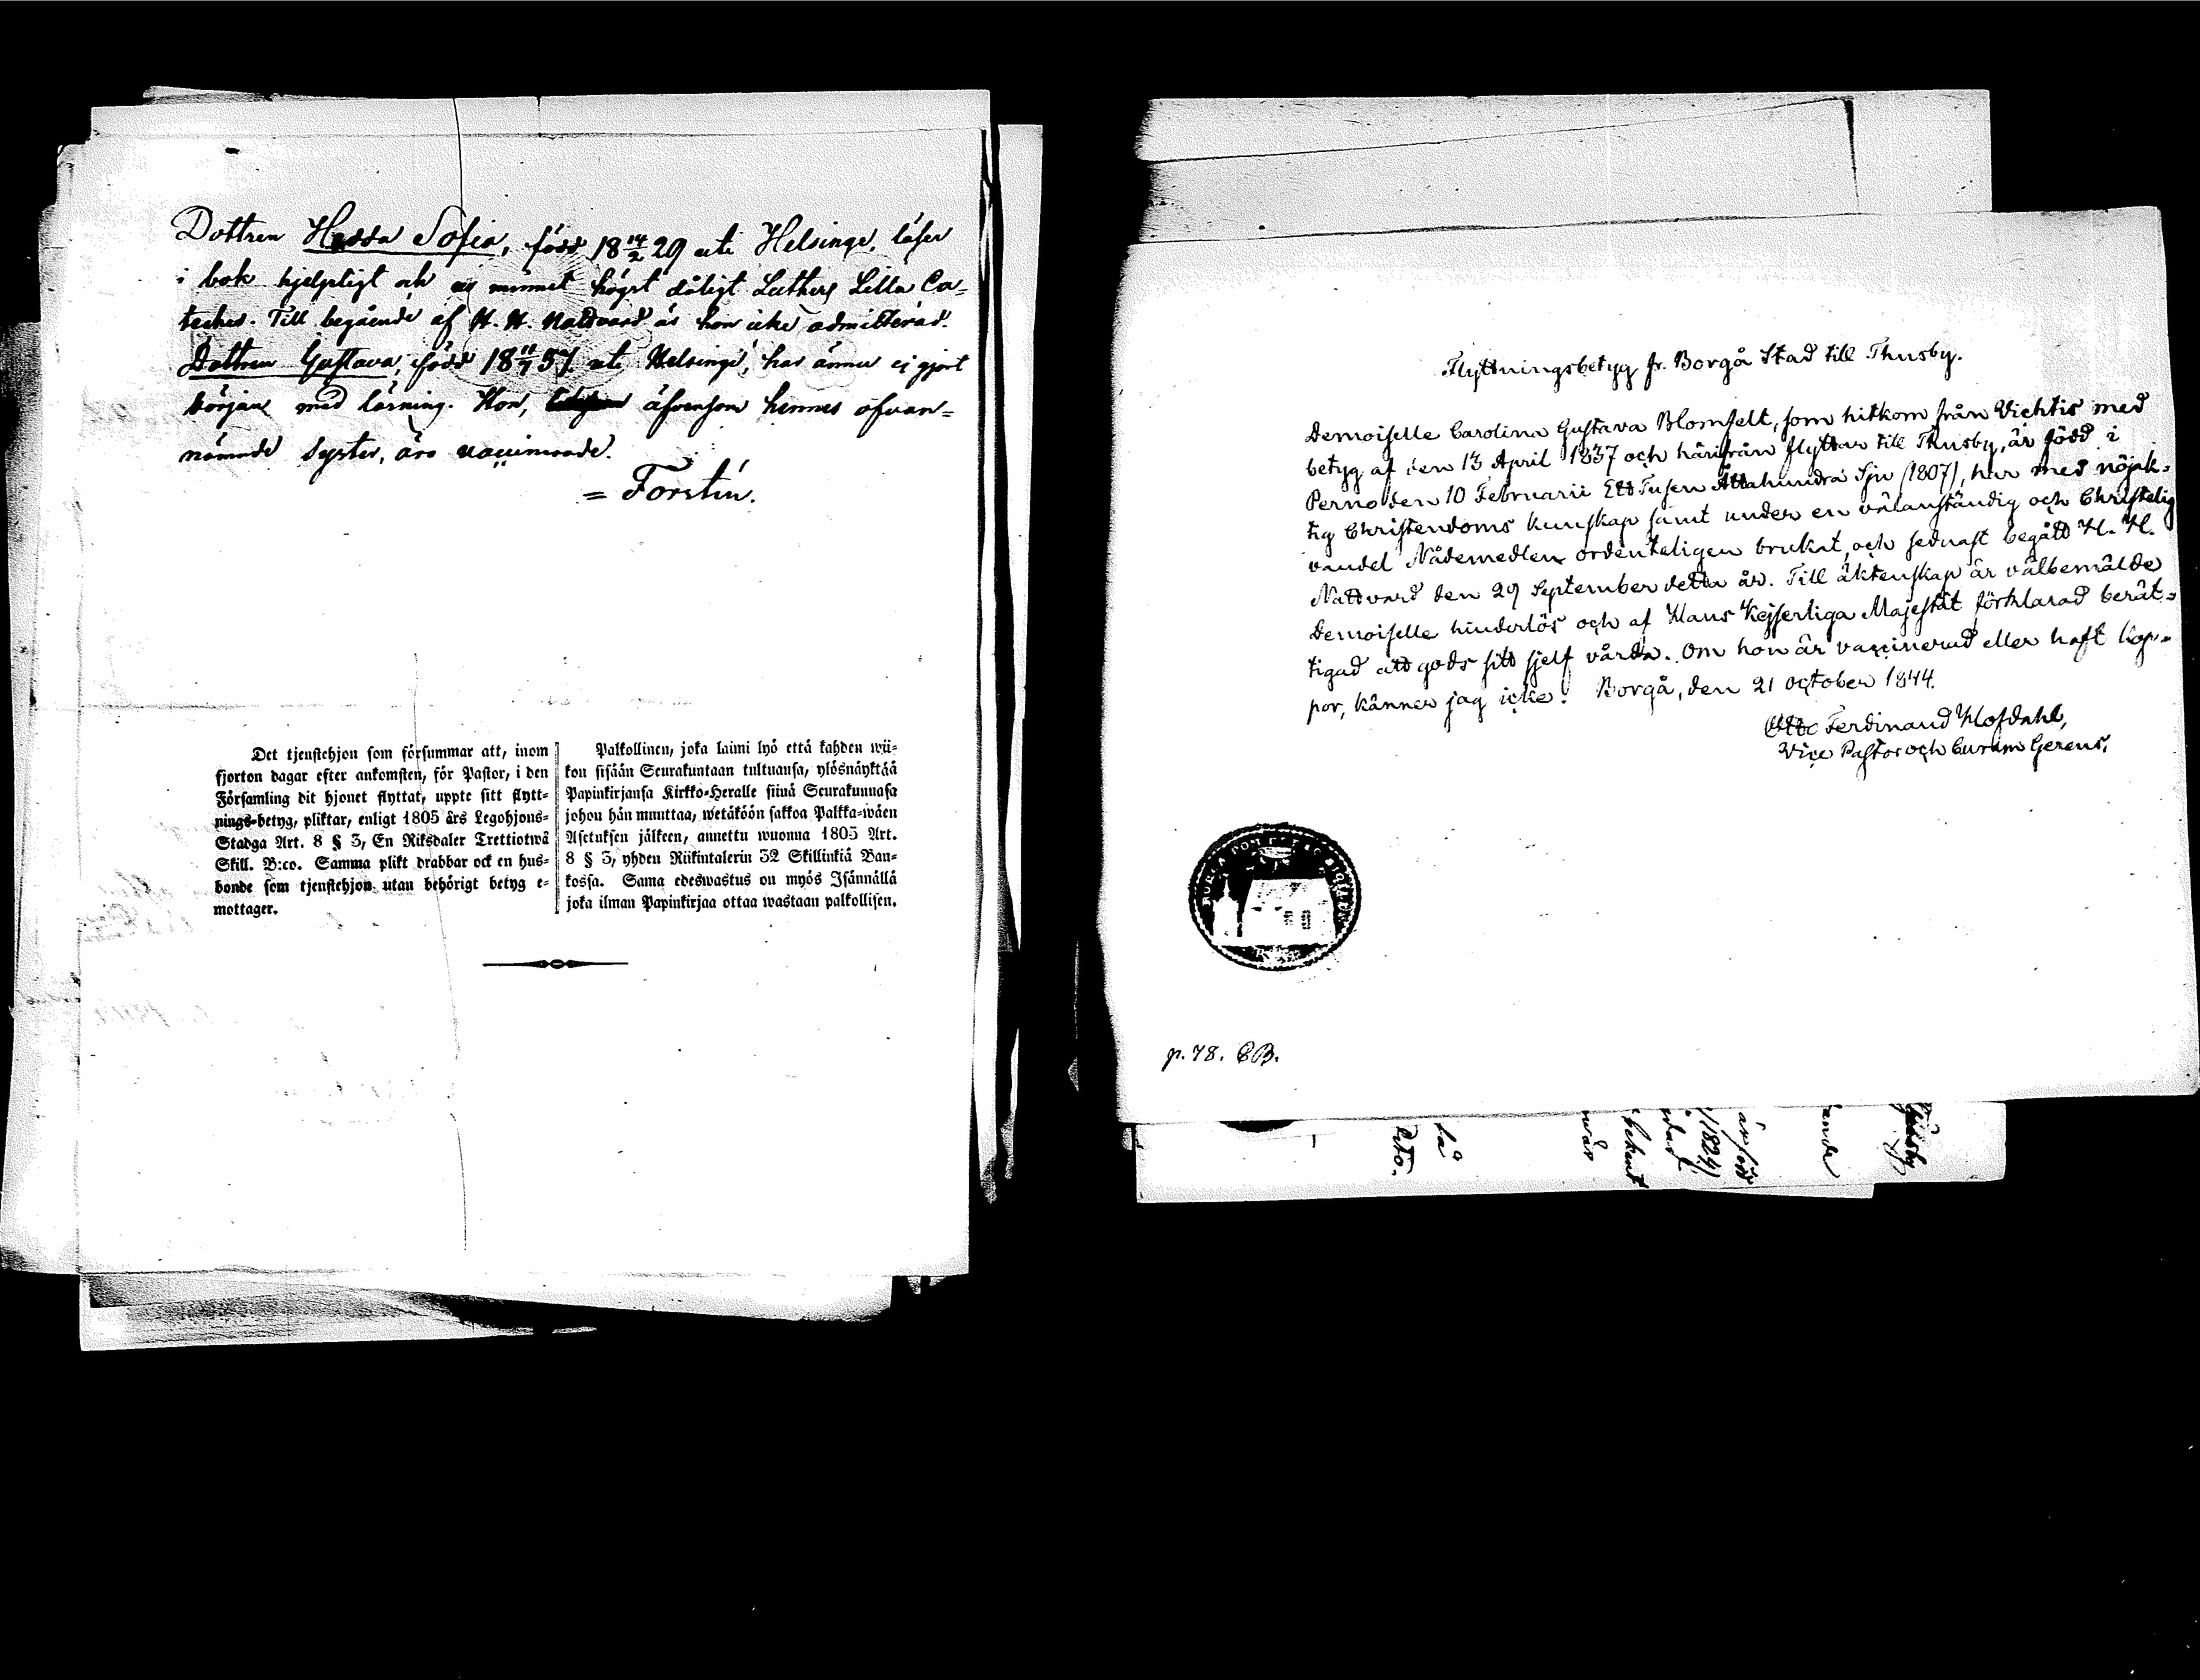 Dottren Hedda Sofia, född 18 14/2 29 uti Helsinge, läser
i bok hjelpligt och ur minnet högst dåligt Luthers Lilla Ca=
teches. Till begående af H. H. Nattvard är hon icke admitterad.
Dottren Gustava, född 18 11/7 37 uti Helsinge, har ännu ej gjort
början med läsning. Hon, äfvensom hennes ofvan=
nämnde syster, äro vaccinerade.
= Forstén.
Det tjenstehjon som försummar att, inom
fjorton dagar efter ankomsten, för Pastor, i den
Församling dit hjonet flyttat, uppte sitt flytt=
nings-betyg, pliktar, enligt 1805 års Legohjons=
Stadga Art. 8 § 3, En Riksdaler Trettiotwå
Skill. B:co. Samma plikt drabbar ock en hus=
bonde som tjenstehjon utan behörigt betyg e=
mottager.
Palkollinen, joka laimi lyö että kahden wii=
kon sisään Seurakuntaan tultuansa, ylösnäyktää
Papinkirjansa Kirkko-Heralle siinä Seurakunnasa
johon hän muuttaa, wetäköön sakkoa Palkka-wäen
Asetuksen jälkeen, annettu wuonna 1805 Art.
8 § 3, yhden Riikintalerin 32 Skillinkiä Ban=
kossa. Sama edeswastus on myös Isännällä
joka ilman Papinkirjaa ottaa wastaan palkollisen.
Flyttningsbetyg fr. Borgå Stad till Thusby.
Demoiselle Carolina Gustava Blomfelt, som hitkom från Vichtis med
betyg af den 13 April 1837 och härifrån flyttar till Thusby, är född i
Perno den 10 Februarii Ett Tusen Åttahundra Sju (1807), har med nöjak=
tig Christendoms kunskap samt under en välanständig och Christelig
vandel Nådemedlen ordenteligen brukat, och sednast begått H. H.
Nattvard den 29 September detta år. Till äktenskap är välbemälde
Demoiselle hinderlös och af Hans Kejserliga Majestät förklarad berät=
tigad att gods sitt sjelf vårda. Om hon är vaccinerad eller haft kop=
por, känner jag icke. Borgå, den 21 October 1844.
Otto Ferdinand Hofdahl,
Vice Pastor och Curam Gerens.
p. 78. CB.
(1824)